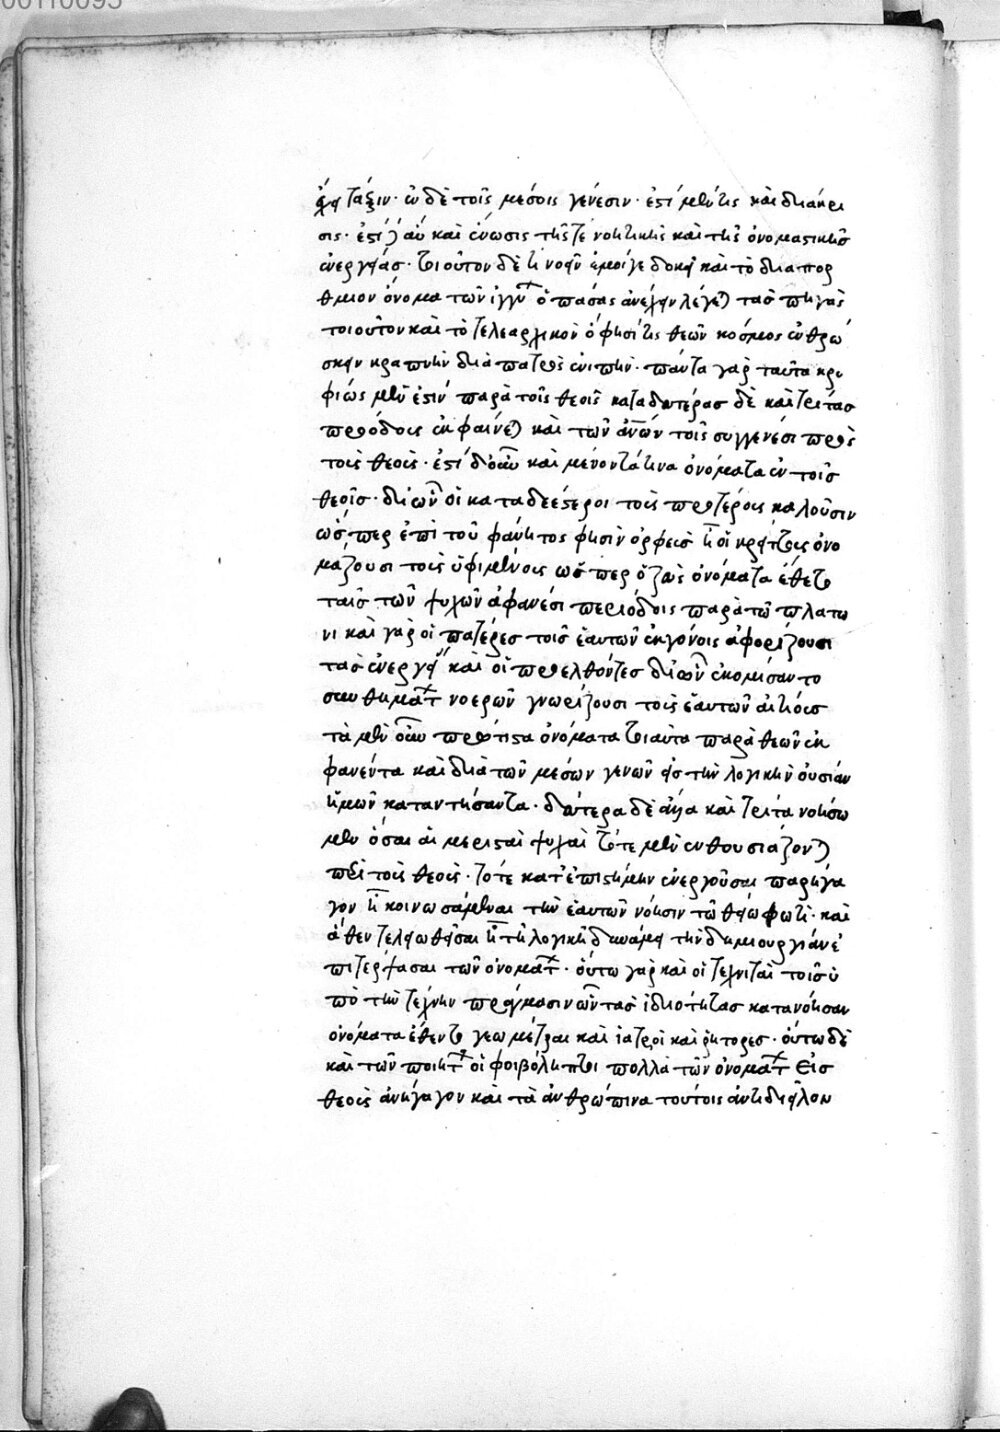 00110095
ἔχει τάξιν· ἐν δὲ τοῖς μέσοις γένεσιν· ἐστί μέν τις καὶ διάκρι
σις· ἐστί δ' αὖ καὶ ἕνωσις τῆς τε νοητικῆς καὶ τῆς ὀνομαστικῆς
ἐνεργείας· τοιοῦτον δέ τι νοεῖν ἔμοιγε δοκεῖ καὶ τὸ διαπόρ
θμιον ὄνομα τῶν ἰύγγων ὃ πάσας ἀνέχειν λέγεται τὰς πηγάς
τοιοῦτον καὶ τὸ τελεαρχικὸν ὅ φησί τις θεῶν κόσμοις ἐνθρώ
σκειν κραιπνὴν διὰ πατρὸς ἐνιπήν· πάντα γὰρ ταῦτα κρυ
φίως μὲν ἐστίν παρὰ τοῖς θεοῖς κατὰ δευτέρας δὲ καὶ τρίτας
προόδοις ἐκφαίνεται καὶ τῶν ἀνῶν τοῖς συγγενέσι πρὸς
τοῖς θεοῖς· ἐστί δ' οὖν καὶ μένοντά τινα ὀνόματα ἐν τοῖς
θεοῖς· δι' ὧν οἱ καταδεέστεροι τοὺς προτέρους καλοῦσιν
ὥσπερ ἐπὶ τοῦ φάνητος φησὶν ὀρφεὺς ἢ οἱ κρείττους ὀνο
μάζουσι τοὺς ὑφιμένους ὥσπερ ὁ ζεὺς ὀνόματα ἔθετο
ταῖς τῶν ψυχῶν ἀφανέσι περιόδοις παρὰ τῷ πλάτω
νι καὶ γὰρ οἱ πατέρες τοῖς ἑαυτῶν ἐκγόνοις ἀφορίζουσι
τὰς ἐνεργείας καὶ οἱ προελθόντες δι' ὧν ἐκομίσαντο
συνθημάτων νοερῶν γνωρίζουσι τοὺς ἑαυτῶν αἰτίους
τὰ μὲν οὖν πρώτιστα ὀνόματα τοιαῦτα παρὰ θεῶν ἐκ
φανέντα καὶ διὰ τῶν μέσων γενῶν εἰς τὴν λογικὴν οὐσίαν
ἡμῶν καταντήσαντα· δεύτερα δὲ ἄλλα καὶ τρίτα νοήσω
μεν ὅσα αἱ μερισταὶ ψυχαὶ τότε μὲν ἐνθουσιάζουσαι
περὶ τοὺς θεοὺς· τότε κατ' ἐπιστήμην ἐνεργοῦσαι παρήγα
γον ἢ κοινωσάμεναι τὴν ἑαυτῶν νόησιν τῷ θείῳ φωτὶ· καὶ
ἐκεῖθεν τελειωθεῖσαι ἢ τῇ λογικῇ δυνάμει τὴν δημιουργίαν ἐ
πιτρέψασαι τῶν ὀνομάτων· οὕτω γὰρ καὶ οἱ τεχνῖται τοῖς ὑ
πὸ τὴν τέχνην πράγμασιν ὧν τὰς ἰδιότητας κατανόησαν
ὀνόματα ἔθεντο γεωμέτραι καὶ ἰατροὶ καὶ ῥήτορες· οὕτω δὲ
καὶ τῶν ποιητῶν οἱ φοιβόληπτοι πολλὰ τῶν ὀνομάτων εἰς
θεοὺς ἀνήγαγον καὶ τὰ ἀνθρώπινα τούτοις ἀντιδιεῖλον